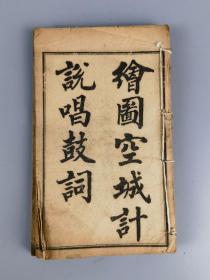 繪圖空城計
說唱鼓詞